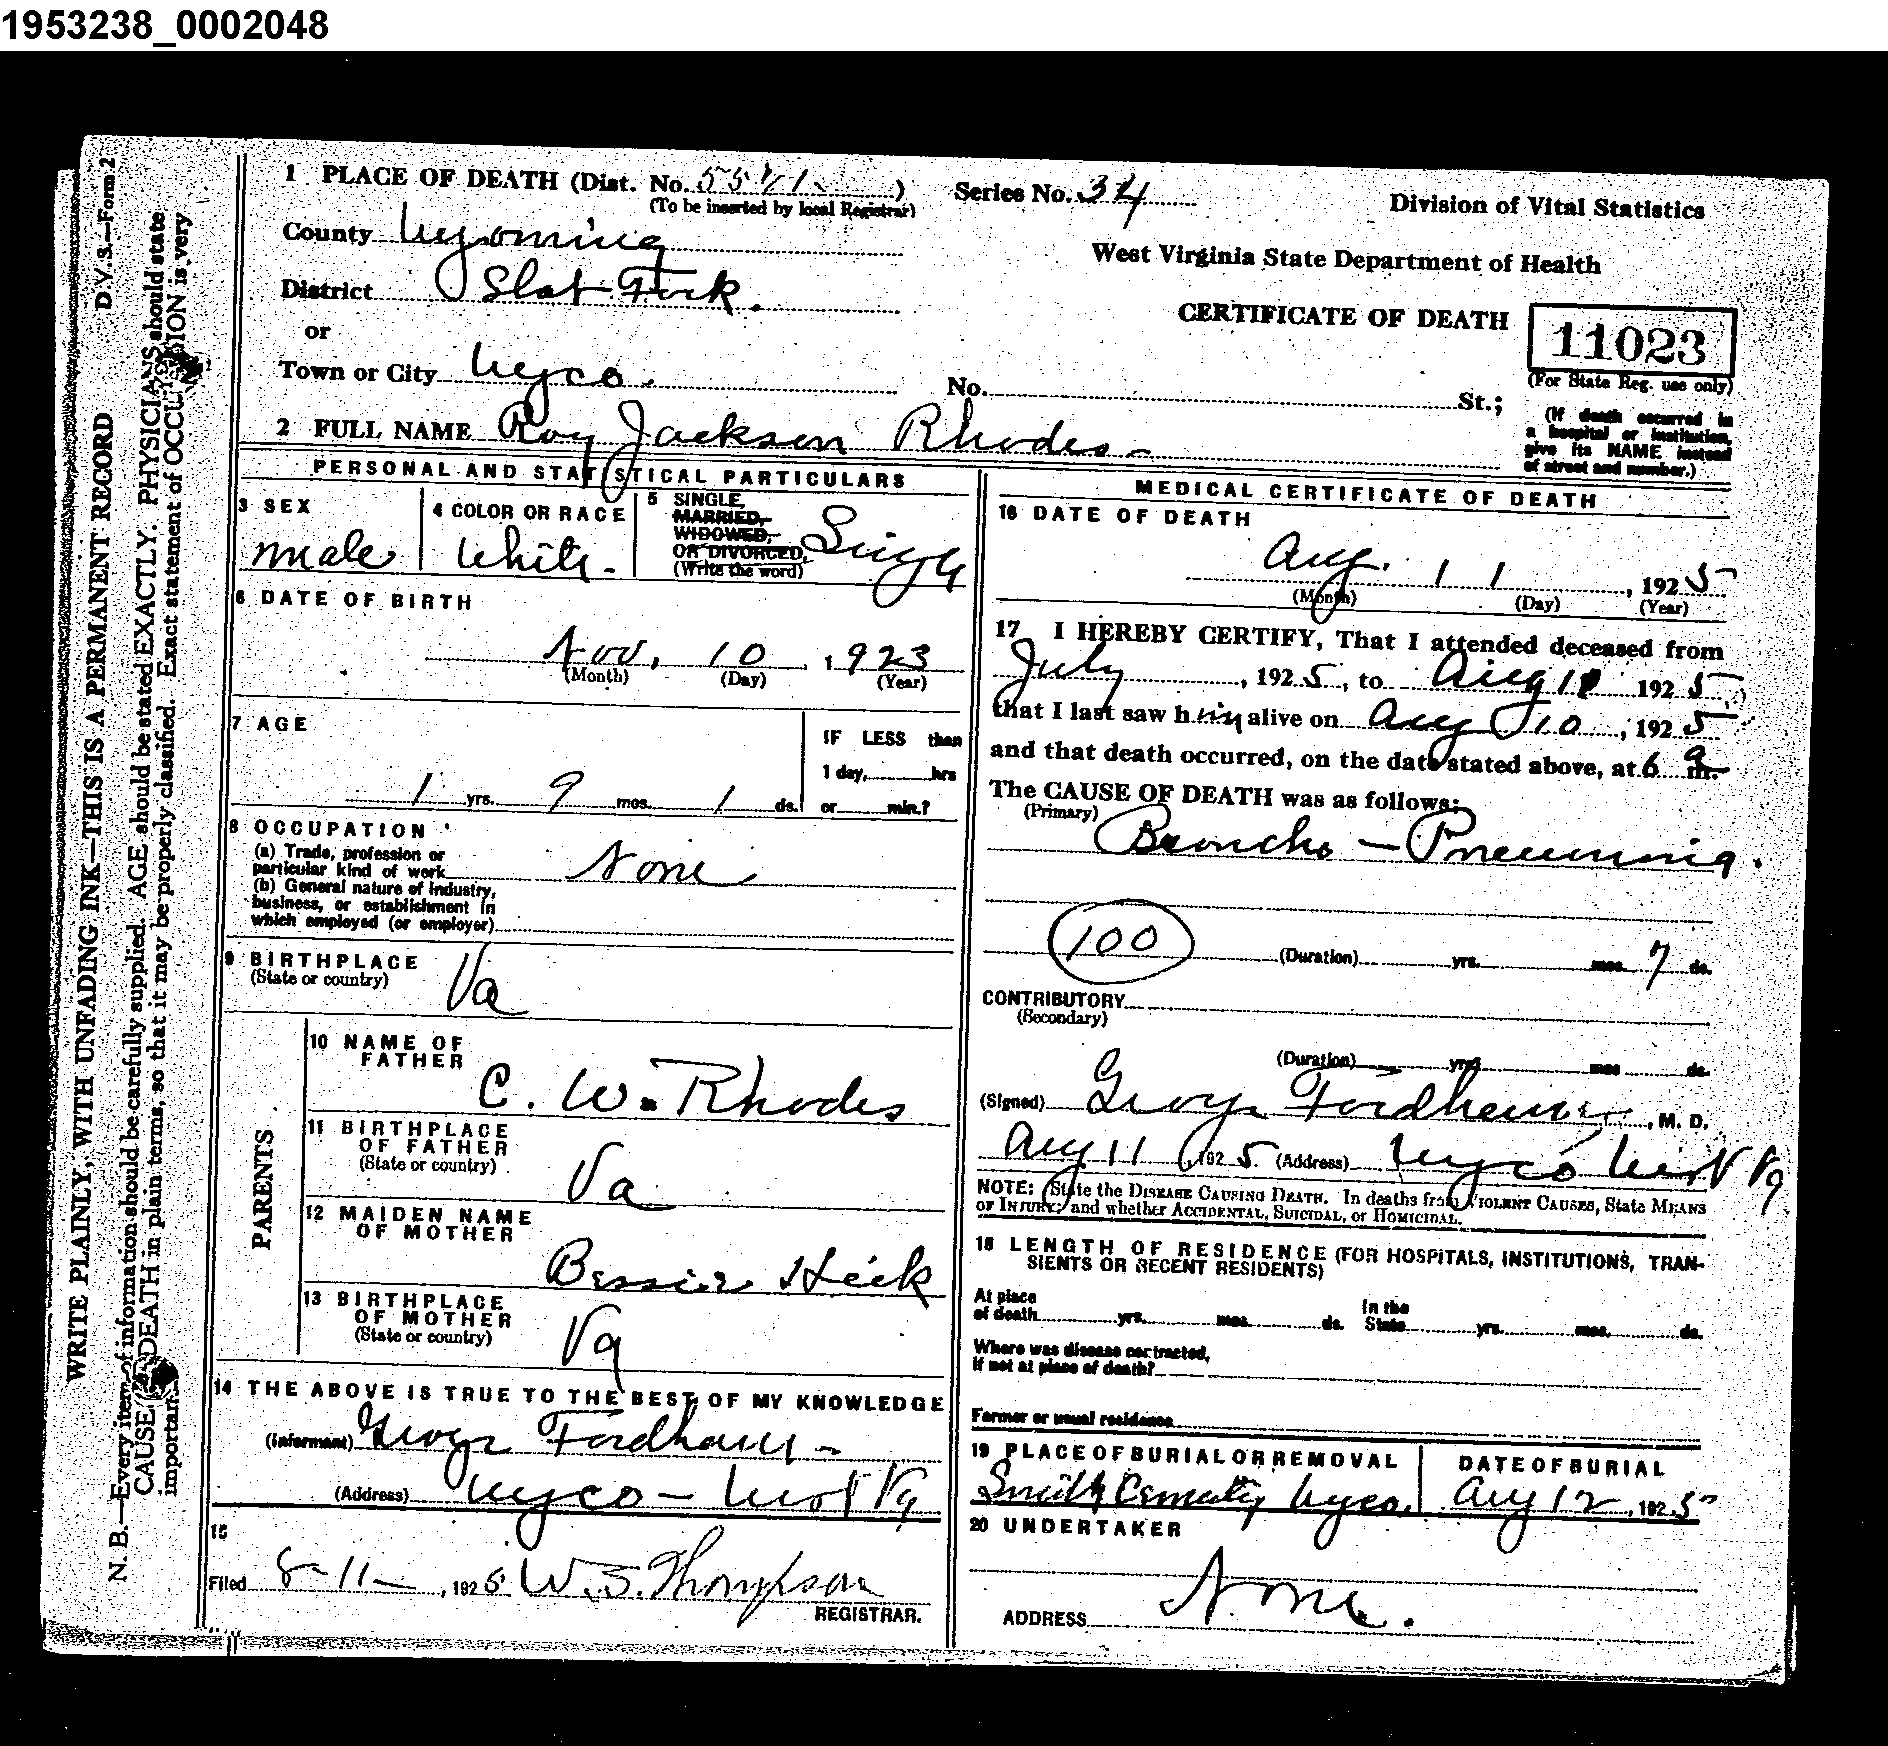 1953238_0002048
1 PLACE OF DEATH (Dist. No. 5541 ) Series No. 34
(To be inserted by local Registrar)
Division of Vital Statistics
County Wyoming
West Virginia State Department of Health
District Slab Fork.
CERTIFICATE OF DEATH
11023
(For State Reg. use only)
or
Town or City Wyco. No. St.;
(If death occurred in
a hospital or institution,
give its NAME instead
of street and number.)
2 FULL NAME Roy Jackson Rhodes
PERSONAL AND STATISTICAL PARTICULARS
3 SEX
male
4 COLOR OR RACE
White
5 SINGLE,
MARRIED,
WIDOWED,
OR DIVORCED,
(Write the word)
Single
6 DATE OF BIRTH
Nov. 10, 1923
(Month) (Day) (Year)
7 AGE
1 yrs. 9 mos. 1 ds.
IF LESS than
1 day, hrs
or min.?
8 OCCUPATION
(a) Trade, profession or
particular kind of work None
(b) General nature of industry,
business, or establishment in
which employed (or employer)
9 BIRTHPLACE
(State or country) Va
PARENTS
10 NAME OF
FATHER
C. W. Rhodes
11 BIRTHPLACE
OF FATHER
(State or country) Va
12 MAIDEN NAME
OF MOTHER
Bessie
13 BIRTHPLACE
OF MOTHER
(State or country) Va
14 THE ABOVE IS TRUE TO THE BEST OF MY KNOWLEDGE
(Informant) George Fordham
(Address) Wyco - West Va
15
Filed 8-11-, 1925 W. S. Thompson
REGISTRAR.
MEDICAL CERTIFICATE OF DEATH
16 DATE OF DEATH
Aug. 11, 1925
(Month) (Day) (Year)
17 I HEREBY CERTIFY, That I attended deceased from
July, 1925, to Aug 1925
that I last saw him alive on Aug 10, 1925
and that death occurred, on the date stated above, at 6 a m.
The CAUSE OF DEATH was as follows:
(Primary)
Broncho - Pneumonia.
100
(Duration) yrs. mos. 7 ds.
CONTRIBUTORY
(Secondary)
(Duration) yrs mos ds.
(Signed) George Fordham, M. D.
Aug 11, 1925. (Address) Wyco West Va
NOTE: State the DISEASE CAUSING DEATH. In deaths from VIOLENT CAUSES, State MEANS
OF INJURY; and whether ACCIDENTAL, SUICIDAL, or HOMICIDAL.
18 LENGTH OF RESIDENCE (FOR HOSPITALS, INSTITUTIONS, TRAN-
SIENTS OR RECENT RESIDENTS)
At place
of death yrs. mos. ds.
In the
State yrs. mos. ds.
Where was disease contracted,
if not at place of death?
Former or usual residence
19 PLACE OF BURIAL OR REMOVAL
Smith Cemetery Wyco.
DATE OF BURIAL
Aug 12, 1925
20 UNDERTAKER
None.
ADDRESS
D.V.S.—Form 2
WRITE PLAINLY, WITH UNFADING INK—THIS IS A PERMANENT RECORD
N. B.—Every item of information should be carefully supplied. AGE should be stated EXACTLY. PHYSICIANS should state
CAUSE OF DEATH in plain terms, so that it may be properly classified. Exact statement of OCCUPATION is very
important.